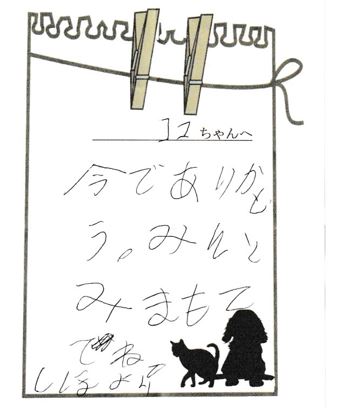 ココちゃんへ
今でありがと
う。みんと
みまもて
でね
しほより